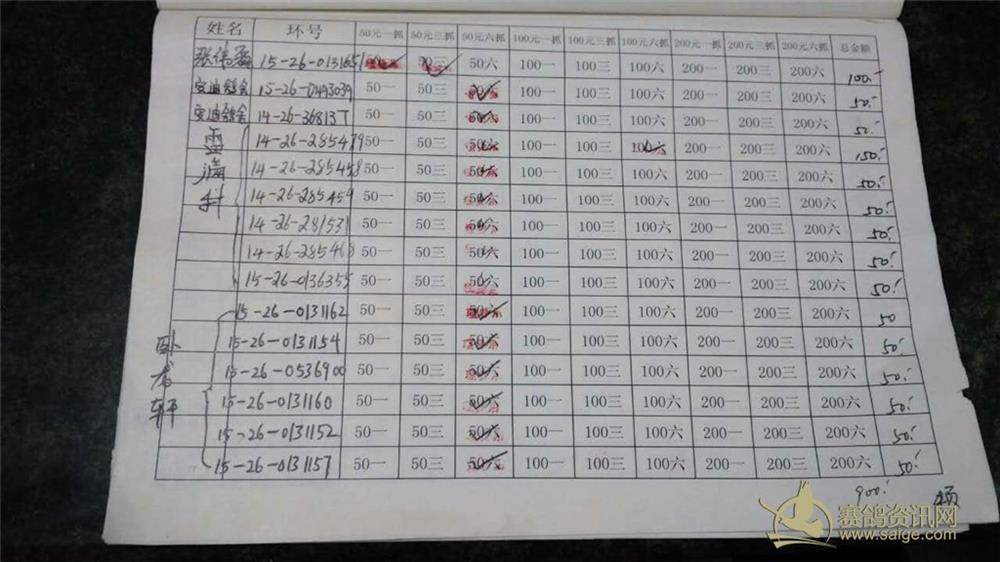 姓名 环号 50元一抓 50元三抓 50元六抓 100元一抓 100元三抓 100元六抓 200元一抓 200元三抓 200元六抓 总金额
15-26-0131651 50一 50三 50六 100一 100三 100六 200一 200三 200六 100.
15-26-0493039 50一 50三 50六 100一 100三 100六 200一 200三 200六 50.
14-26-368137 50一 50三 50六 100一 100三 100六 200一 200三 200六 50.
14-26-285479 50一 50三 50六 100一 100三 100六 200一 200三 200六 150.
14-26-285458 50一 50三 50六 100一 100三 100六 200一 200三 200六 50.
14-26-285459 50一 50三 50六 100一 100三 100六 200一 200三 200六 50.
14-26-281531 50一 50三 50六 100一 100三 100六 200一 200三 200六 50.
14-26-285468 50一 50三 50六 100一 100三 100六 200一 200三 200六 50.
15-26-0136355 50一 50三 50六 100一 100三 100六 200一 200三 200六 50.
15-26-0131162 50一 50三 50六 100一 100三 100六 200一 200三 200六 50
卧龙轩 15-26-0131154 50一 50三 50六 100一 100三 100六 200一 200三 200六 50.
15-26-0536900 50一 50三 50六 100一 100三 100六 200一 200三 200六 50.
15-26-0131160 50一 50三 50六 100一 100三 100六 200一 200三 200六 50.
15-26-0131152 50一 50三 50六 100一 100三 100六 200一 200三 200六 50.
15-26-0131157 50一 50三 50六 100一 100三 100六 200一 200三 200六 50.
900.
赛鸽资讯网
www.saige.com